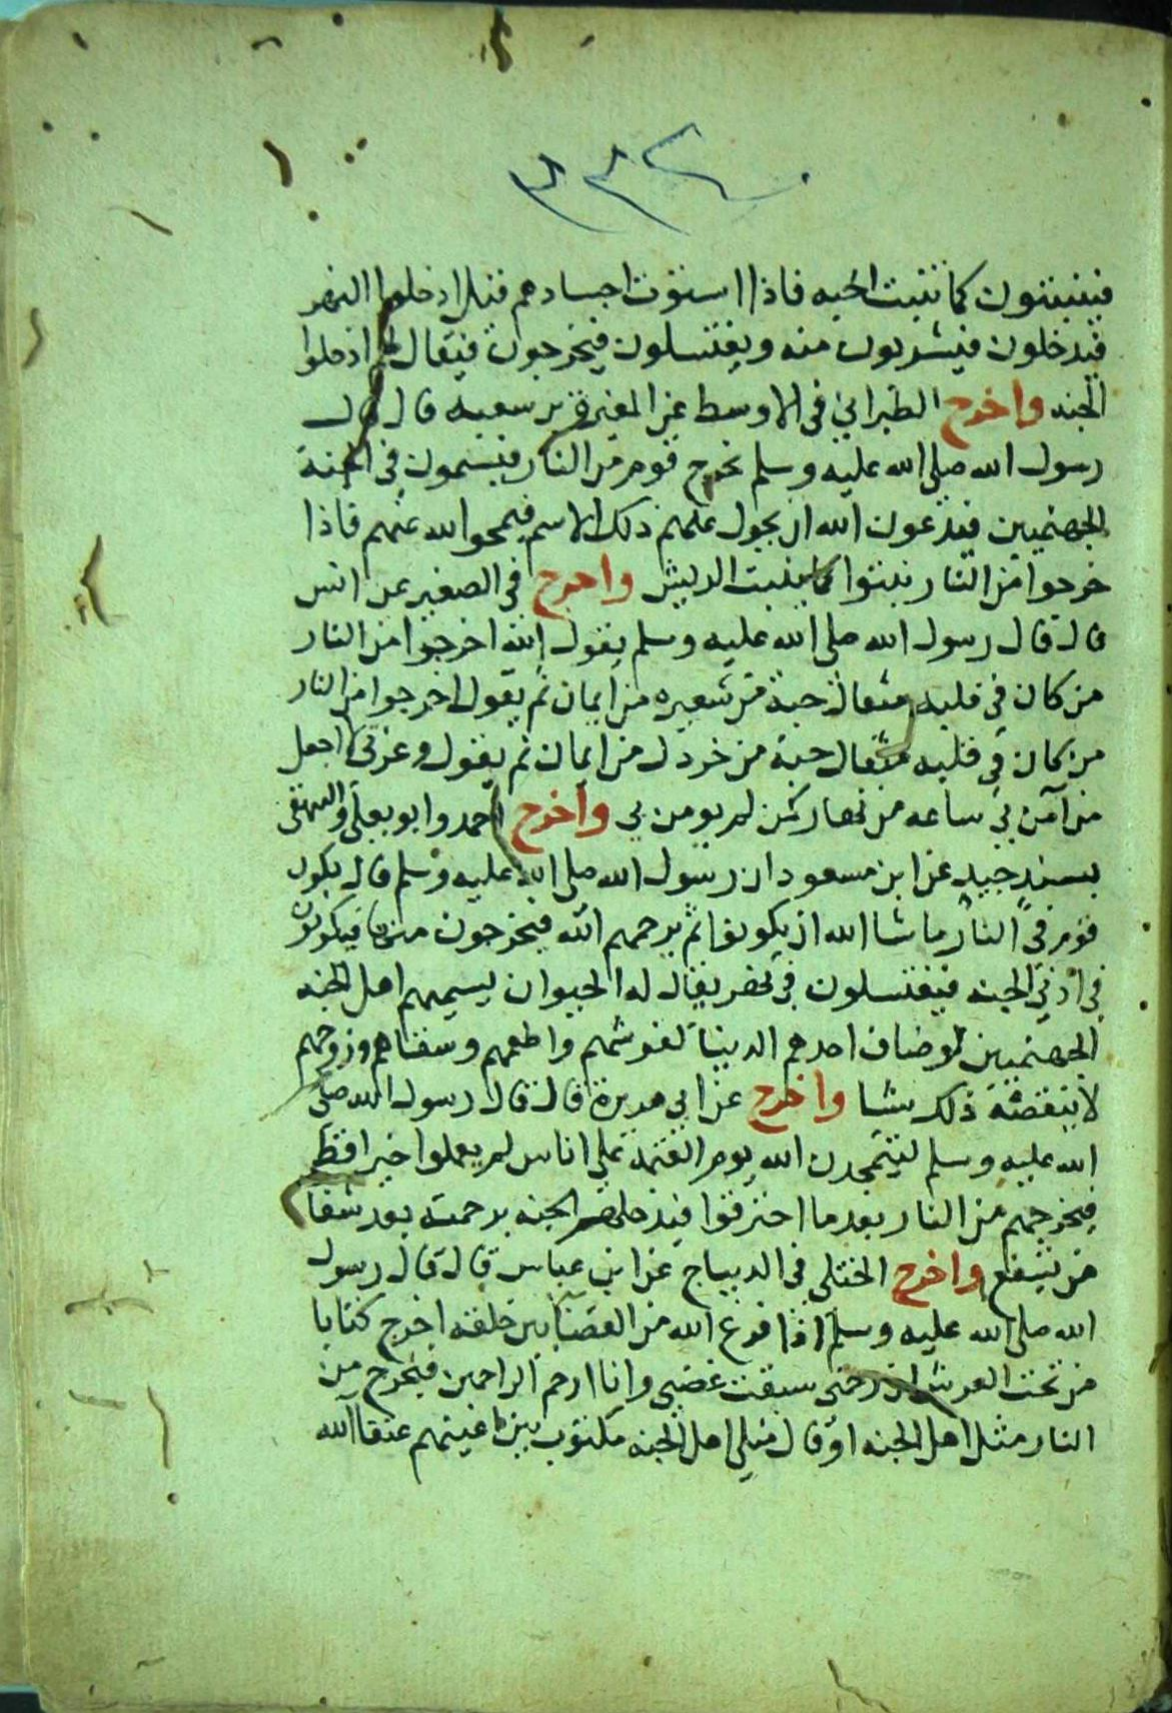 فينبتون كما تنبت الحبه فاذا استوت اجسادهم قيل ادخلوا النهر
فيدخلون فيشربون منه ويغتسلون فيخرجون فيقال لهم ادخلوا
الجنه واخرج الطبراني في الاوسط عن المغيرة بن شعبه قال قال
رسول الله صلى الله عليه وسلم يخرج قوم من النار فيسمون في الجنة
الجهنميين فيدعون الله ان يحول عنهم ذلك الاسم فيمحو الله عنهم فاذا
خرجوا من النار نبتوا كما ينبت الريش واخرج في الصغير عن انس
قال قال رسول الله صلى الله عليه وسلم يقول الله اخرجوا من النار
من كان في قلبه مثقال حبة من شعيره من ايمان ثم يقول اخرجوا من النار
من كان في قلبه مثقال حبة من خردل من ايمان ثم يقول وعزتي لا اجعل
من آمن بي ساعه من نهار كمن لم يومن بي واخرج احمد وابو يعلى والبيهقى
بسند جيد عن ابن مسعود ان رسول الله صلى الله عليه وسلم قال يكون
قوم في النار ما شا الله ان يكونوا ثم يرحمهم الله فيخرجون منها فيكونون
في ادني الجنه فيغتسلون في نهر يقال له الحيوان يسميهم اهل الجنه
الجهنميين لو ضاف احدهم الدنيا لفرشهم واطعمهم وسقاهم وزوجهم
لا ينقصه ذلك شيا واخرج عن ابي هريرة قال قال رسول الله صلى
الله عليه وسلم ليتمجدن الله يوم القيمة على اناس لم يعملوا خيرا قط
فيخرجهم من النار بعد ما احترقوا فيدخلهم الجنه برحمته بعد شفا
من يشفع واخرج الختلي في الديباج عن ابن عباس قال قال رسول
الله صلى الله عليه وسلم اذا فرغ الله من القضا بين خلقه اخرج كتابا
من تحت العرش ان رحمتى سبقت غضبى وانا ارحم الراحمين فيخرج من
النار مثل اهل الجنه او قال مثلى اهل الجنه مكتوب بين اعينهم عتقا الله